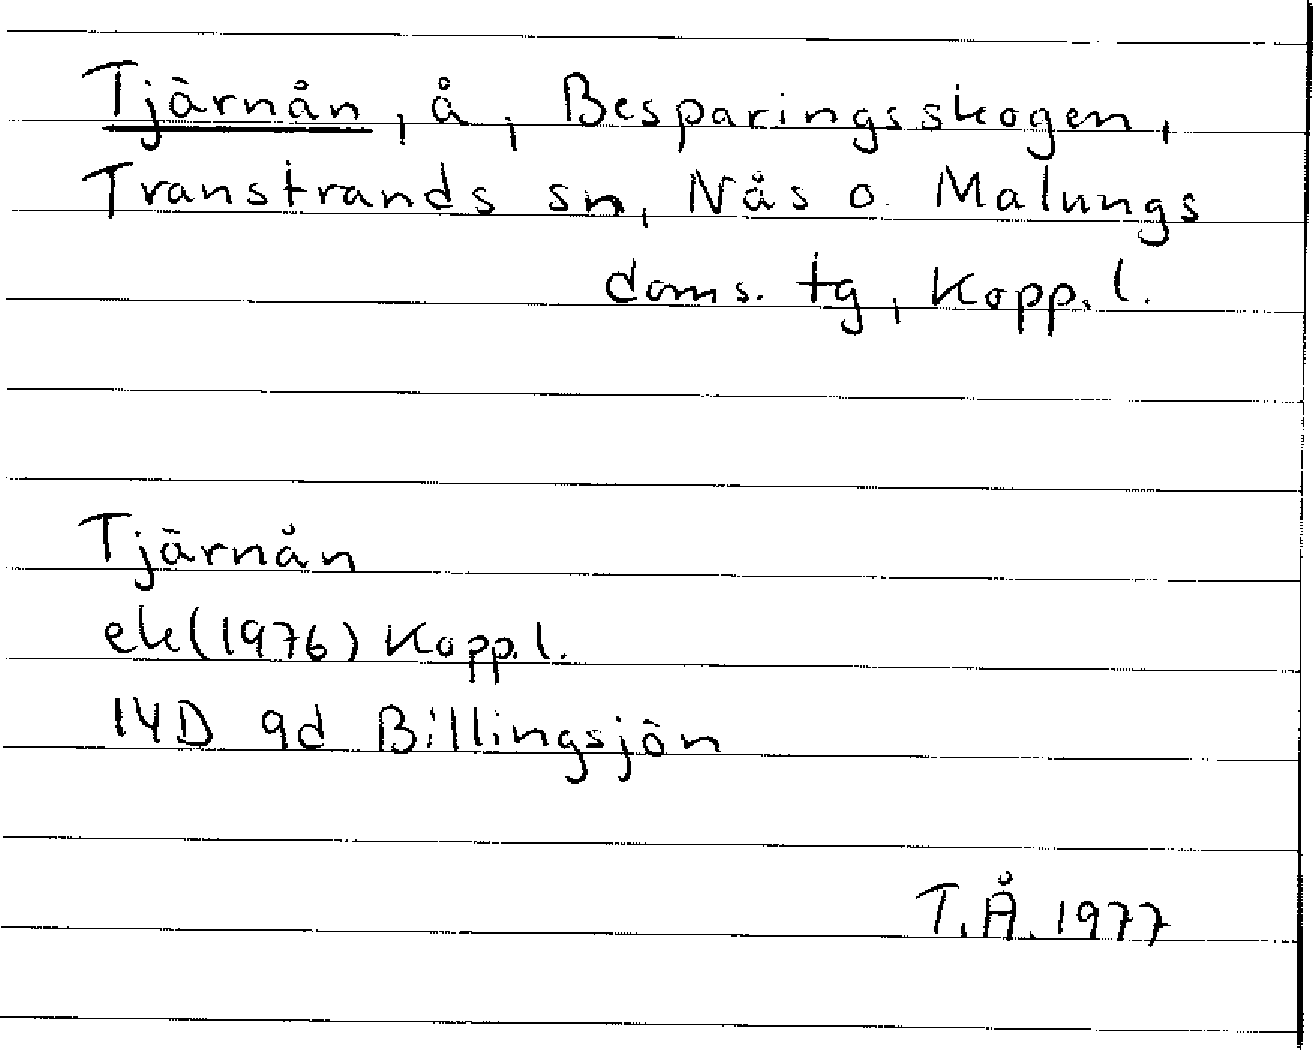 Tjärnån, å, Besparingsskogen,
Transtrands sn, Nås o. Malungs
doms. tg, Kopp. l.
Tjärnån
ek (1976) Kopp. l.
14D 9d Billingsjön
T.Å. 1977